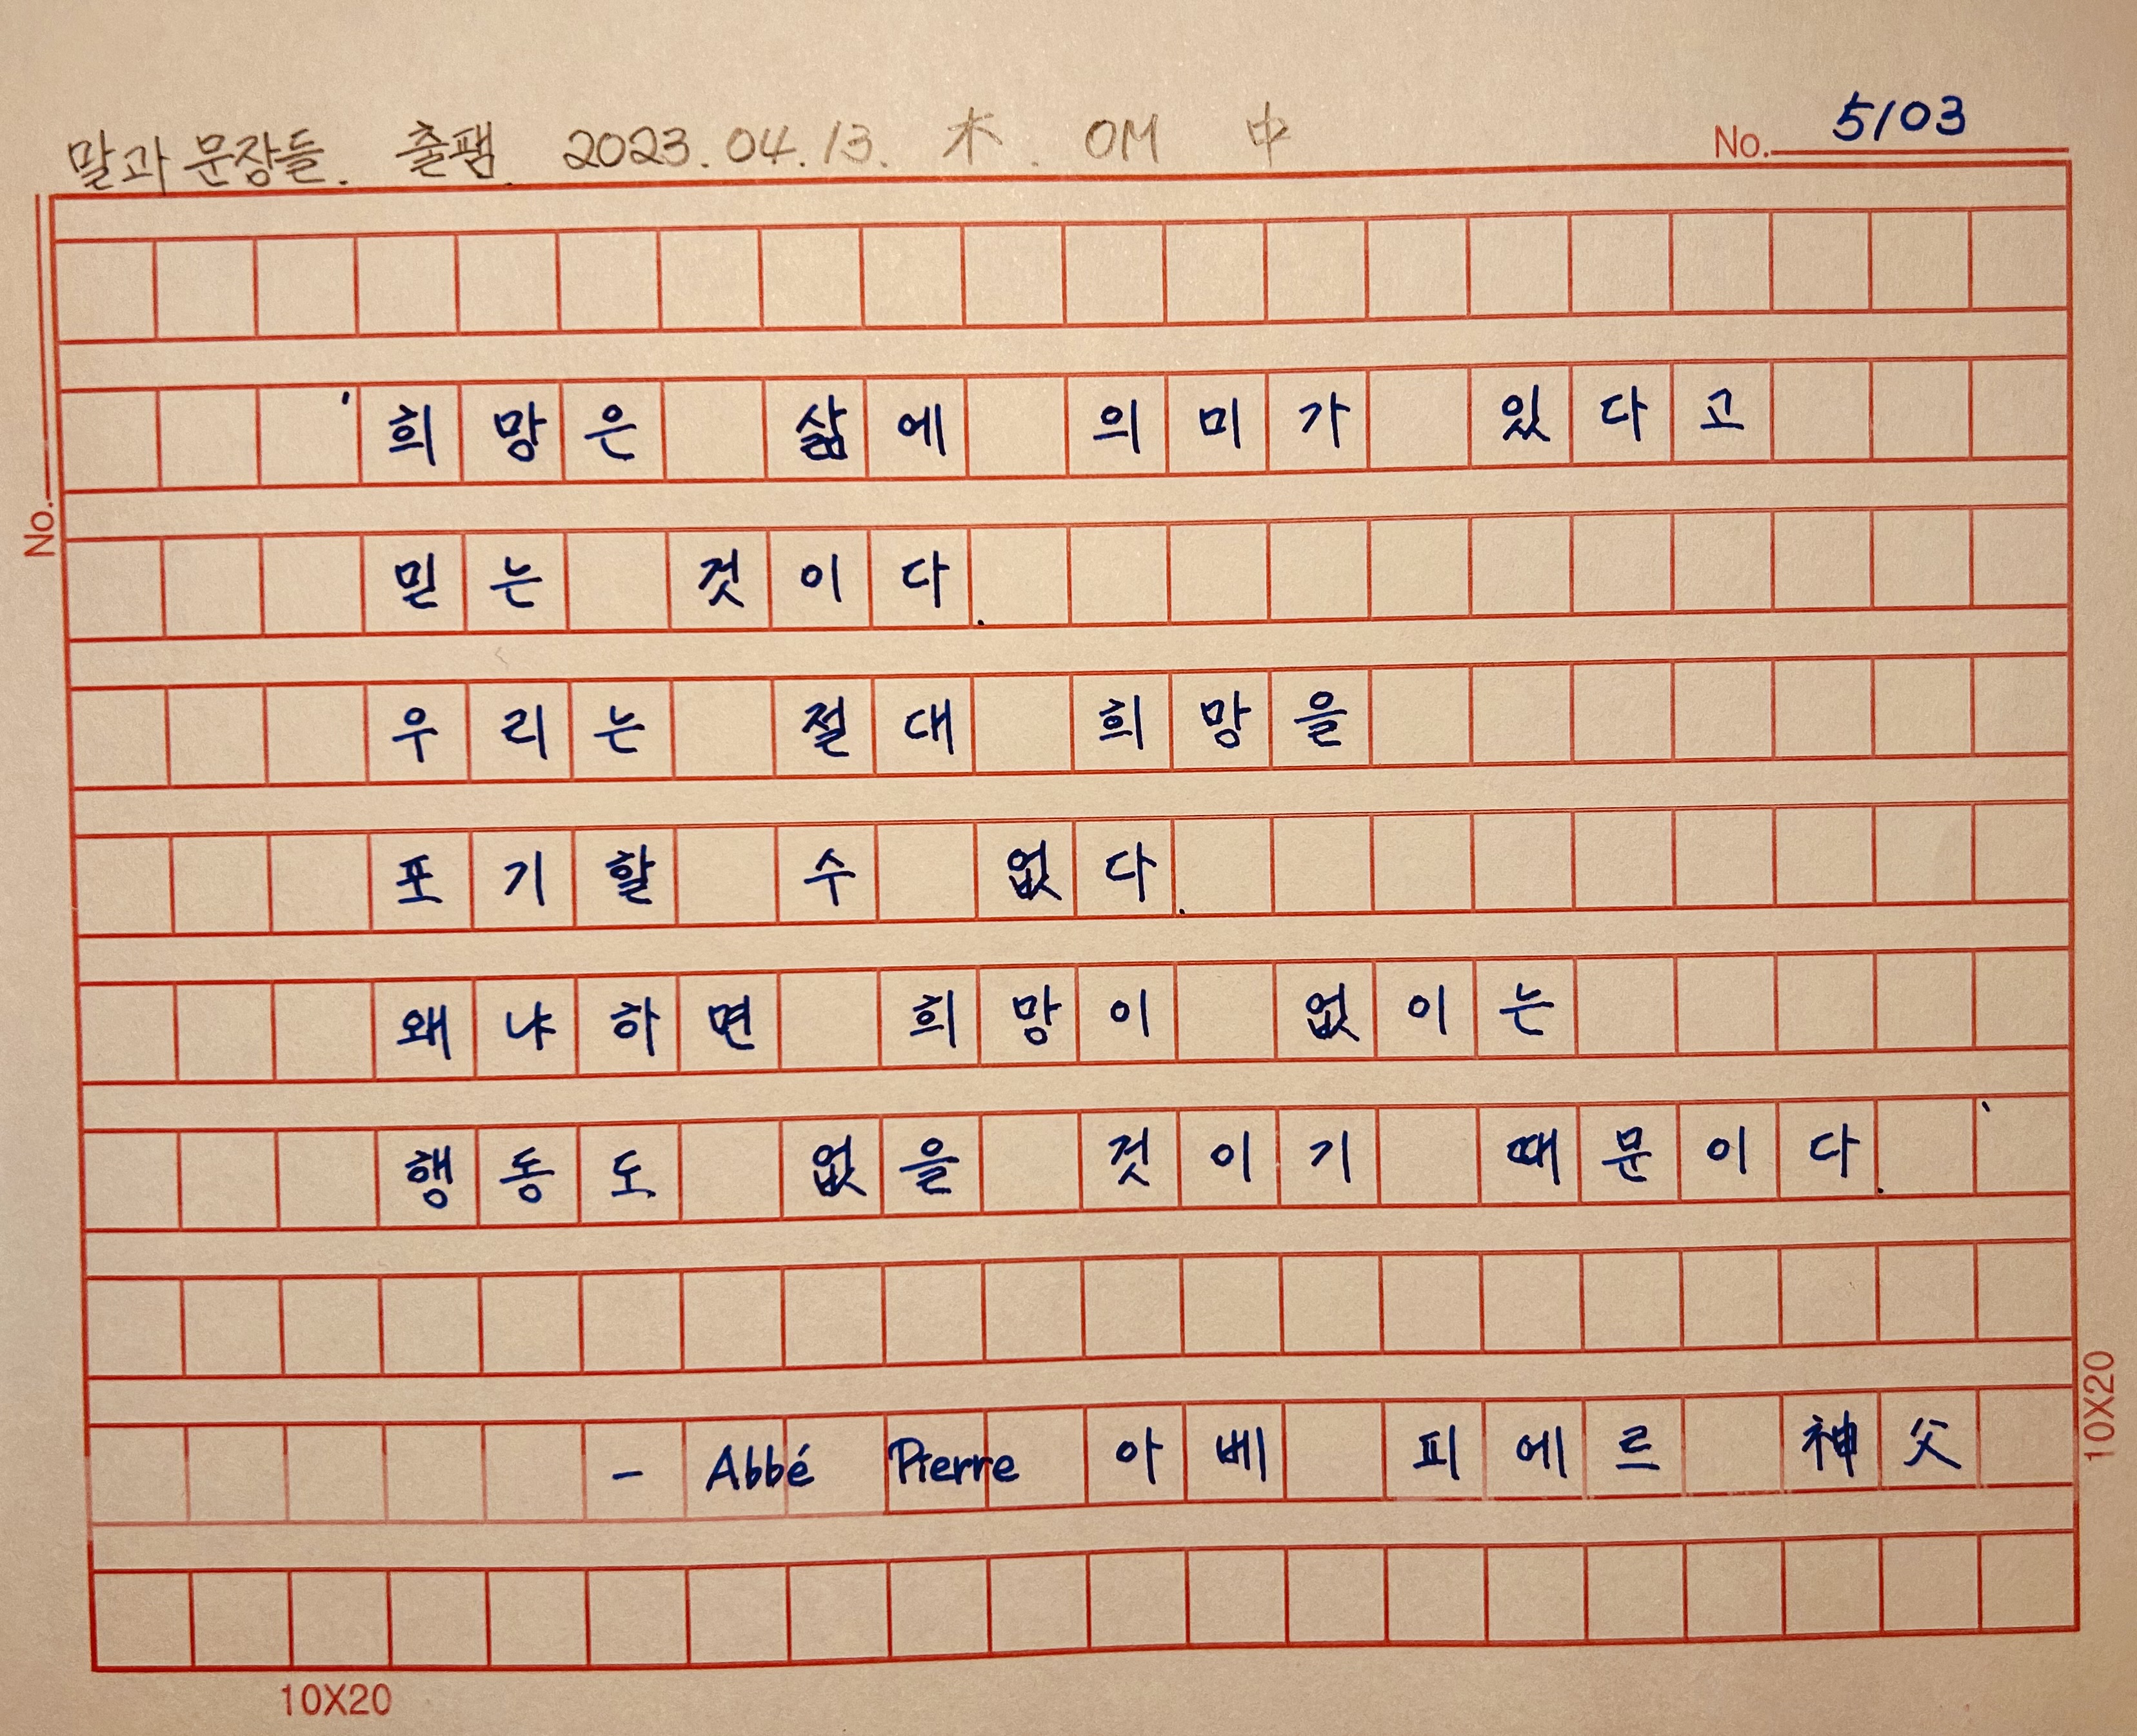 말과 문장들. 출팸. 2023.04.13. 木. OM 中 No. 5103
'희망은 삶에 의미가 있다고
No.
믿는 것이다.
우리는 절대 희망을
포기할 수 없다.
왜냐하면 희망이 없이는
행동도 없을 것이기 때문이다.'
- Abbé Pierre 아베 피에르 神父
10X20
10X20